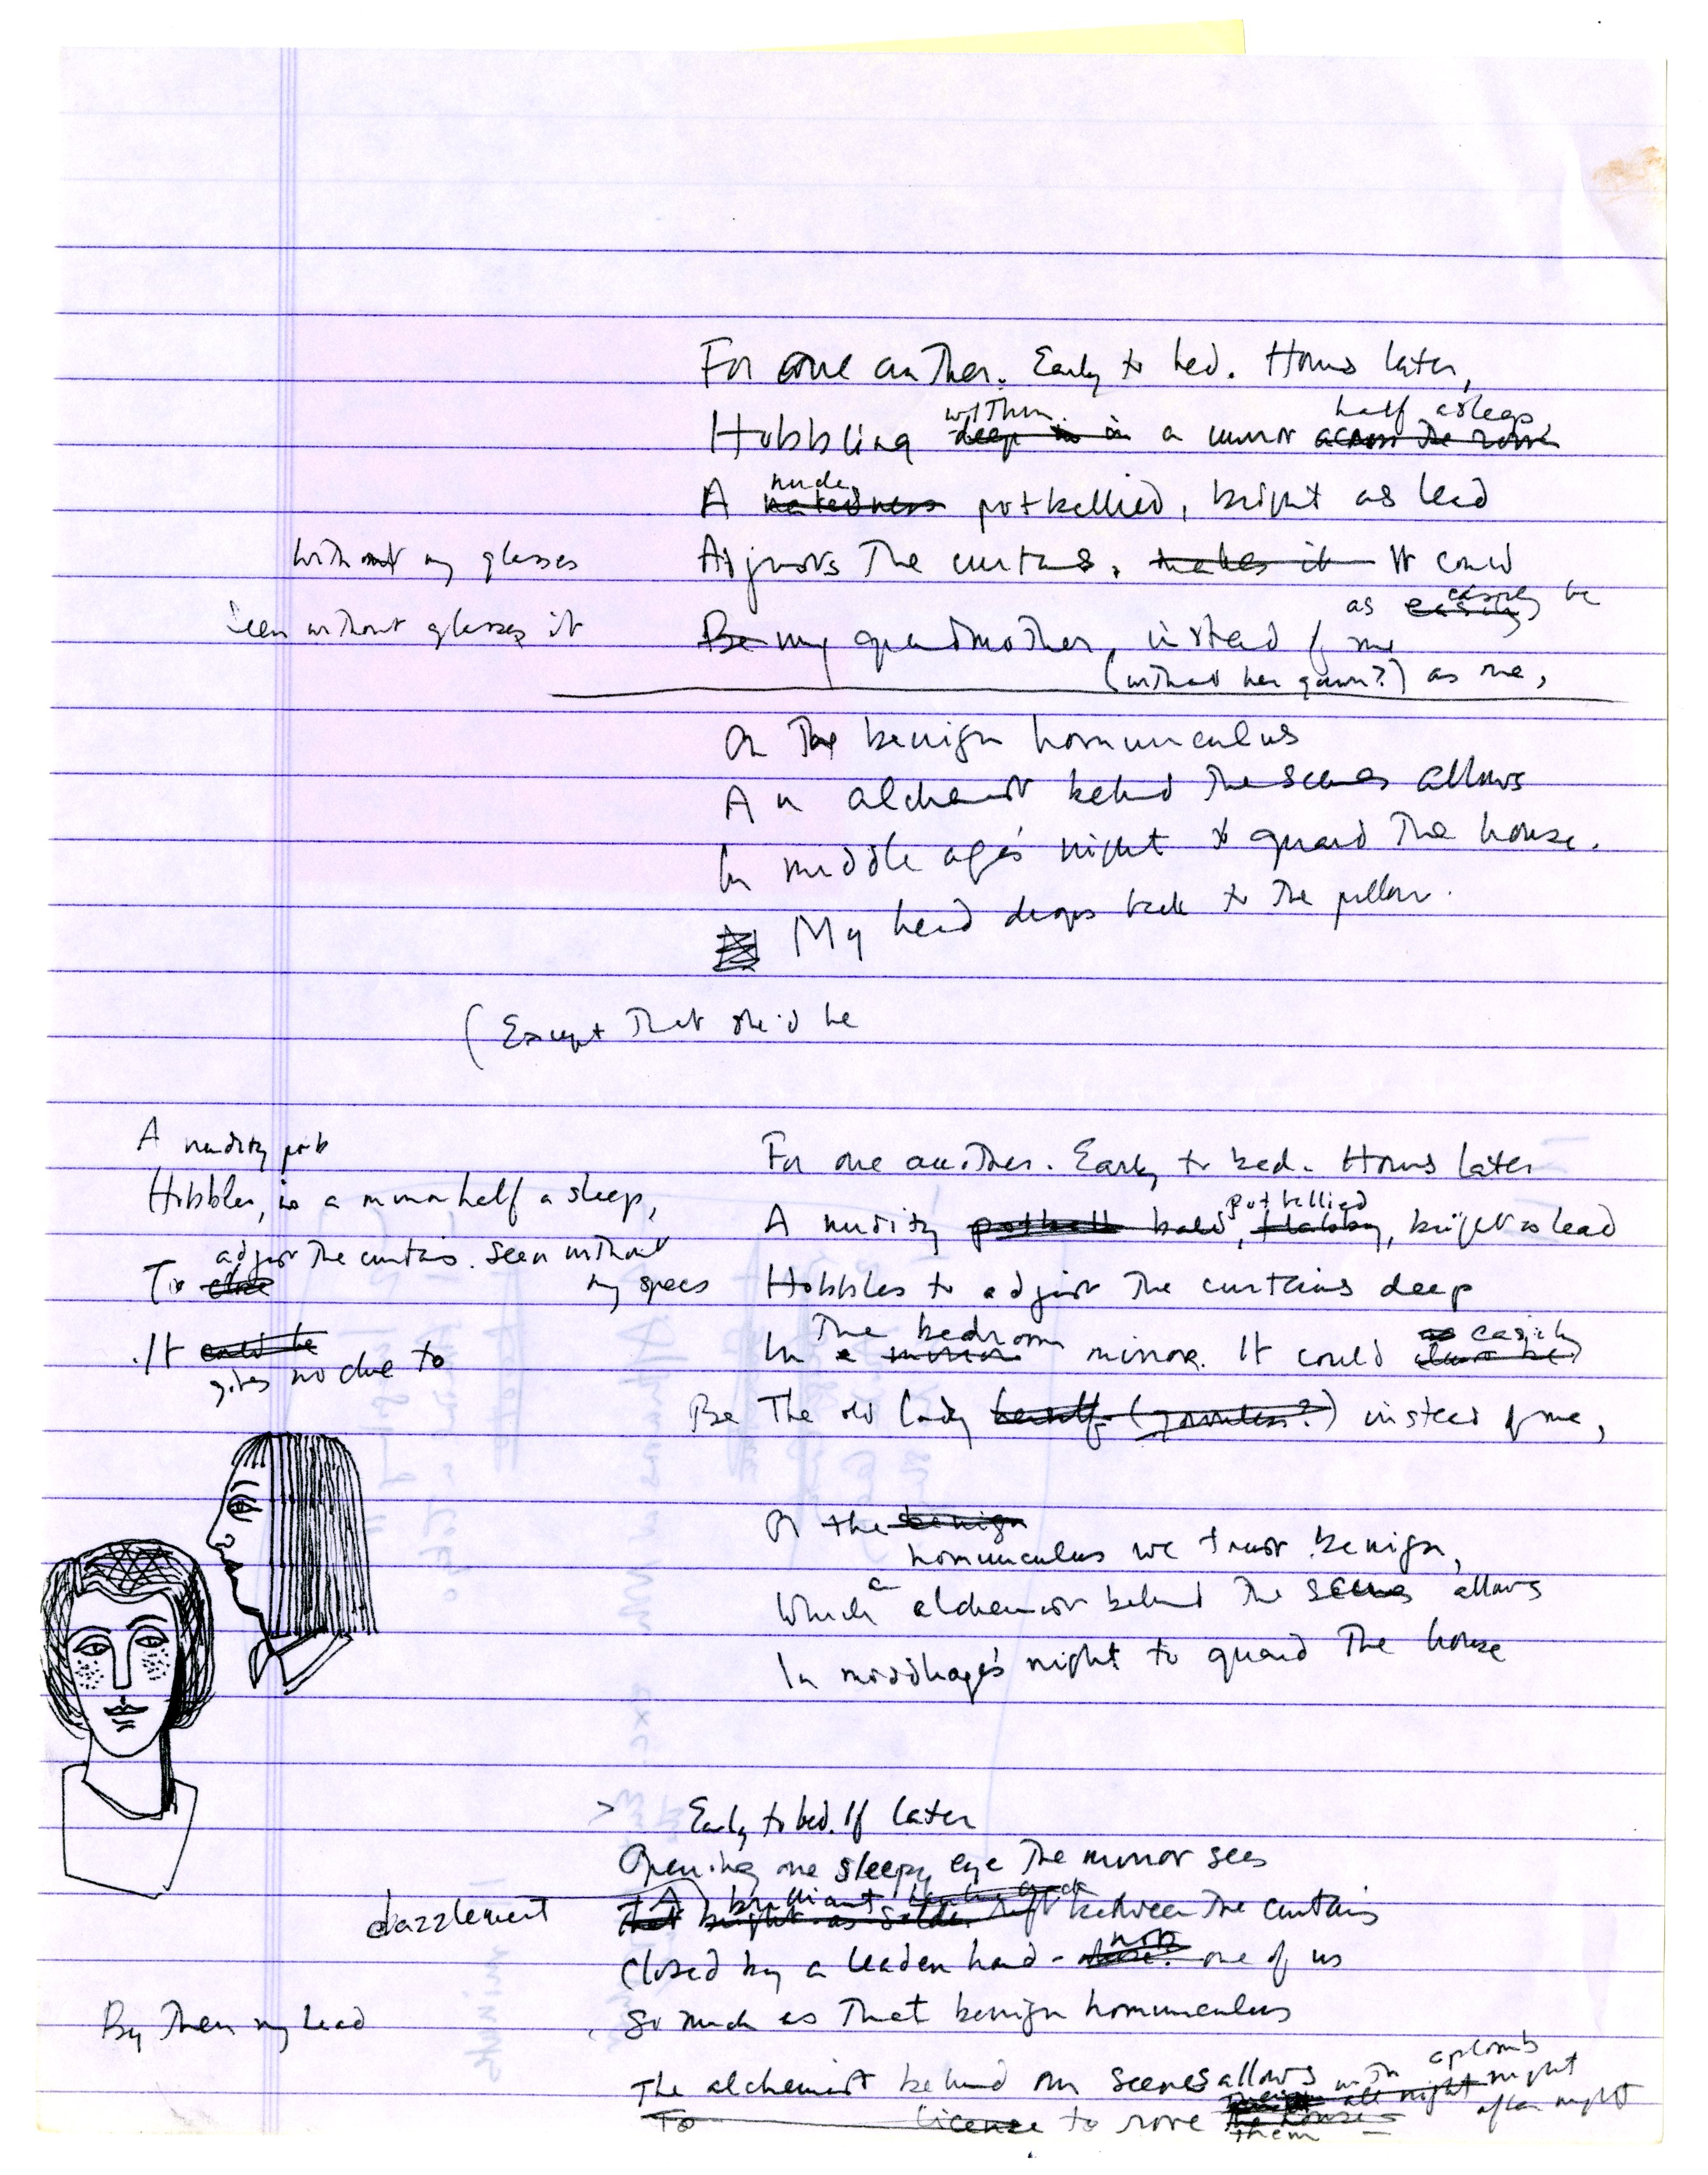 For one another. Early to bed. Hours later,
within half asleep
Hobbling deep in a mirror across the room
nude,
A nakedness potbellied, bright as lead
without my glasses
Adjusts the curtains. makes it It could
as easily be
Seen without glasses it
Be my grandmother, instead of me
(without her gown?) as me,
Or the benign homunculus
An alchemist behind the scenes allows
In middle age's night to guard the house.
My head drops back to the pillow.
(Except that she'd be
A nudity
Hobbles, in a mirror half asleep,
adjust the curtains. Seen without
my specs
To close
It could be
gives no clue to
For one another. Early to bed. Hours later
potbellied
A nudity bald, flabby, bright as lead
Hobbles to adjust the curtains deep
The bedroom
In a mirror mirror. It could as easily
Be the old lady herself (gownless?) instead of me,
Or the benign
homunculus we trust benign,
Which an alchemist behind the scenes allows
In middle age's night to guard the house
> Early to bed. If later
Opening one sleepy eye the mirror sees
dazzlement
A brilliant
bright as solder between the curtains
Closed by a leaden hand - not one of us
By then my head
So much as that benign homunculus
aplomb
The alchemist behind our scenes allows with
all night night
after night
To license to rove the house -
them